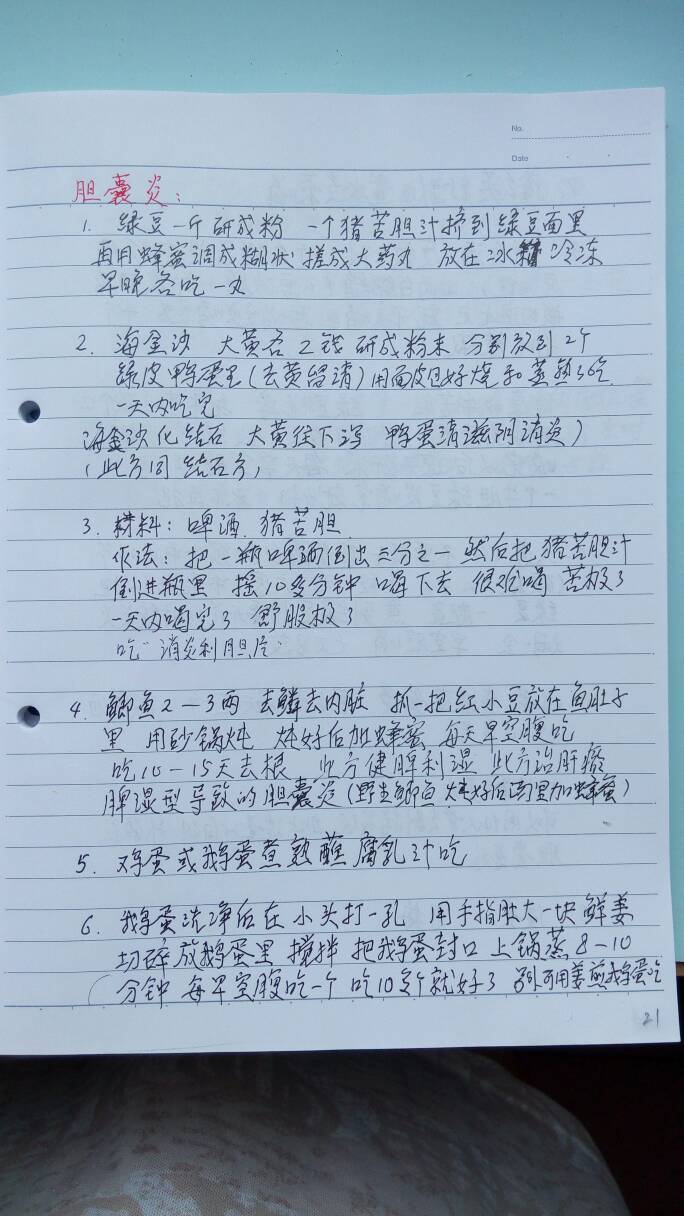 No.
Date
胆囊炎：
1. 绿豆一斤研成粉 一个猪苦胆汁挤到绿豆面里
再用蜂蜜调成糊状 搓成大药丸 放在冰箱冷冻
早晚各吃一丸
2. 海金沙 大黄各2钱 研成粉末 分别放到2个
绿皮鸭蛋里(去黄留清)用面皮包好烧和蒸熟了吃
一天内吃完
海金沙化结石 大黄往下泻 鸭蛋清滋阴消炎)
(此方同结石方)
3. 材料：啤酒、猪苦胆
作法：把一瓶啤酒倒出三分之一 然后把猪苦胆汁
倒进瓶里 摇10多分钟 喝下去 很难喝 苦极了
一天内喝完了 舒服极了
吃"消炎利胆片"
4. 鲫鱼2—3两 去鳞去内脏 抓一把红小豆放在鱼肚子
里 用砂锅炖 炖好后加蜂蜜 每天早空腹吃
吃10—15天去根 此方健脾利湿 此方治肝瘀
脾湿型导致的胆囊炎(野生鲫鱼 炖好后汤里加蜂蜜)
5. 鸡蛋或鹅蛋煮熟蘸腐乳汁吃
6. 鹅蛋洗净后在小头打一孔 用手指肚大一块鲜姜
切碎放鹅蛋里 搅拌 把鹅蛋封口 上锅蒸8—10
分钟 每早空腹吃一个 吃10多个就好了 另外可用姜煎鹅蛋吃
21